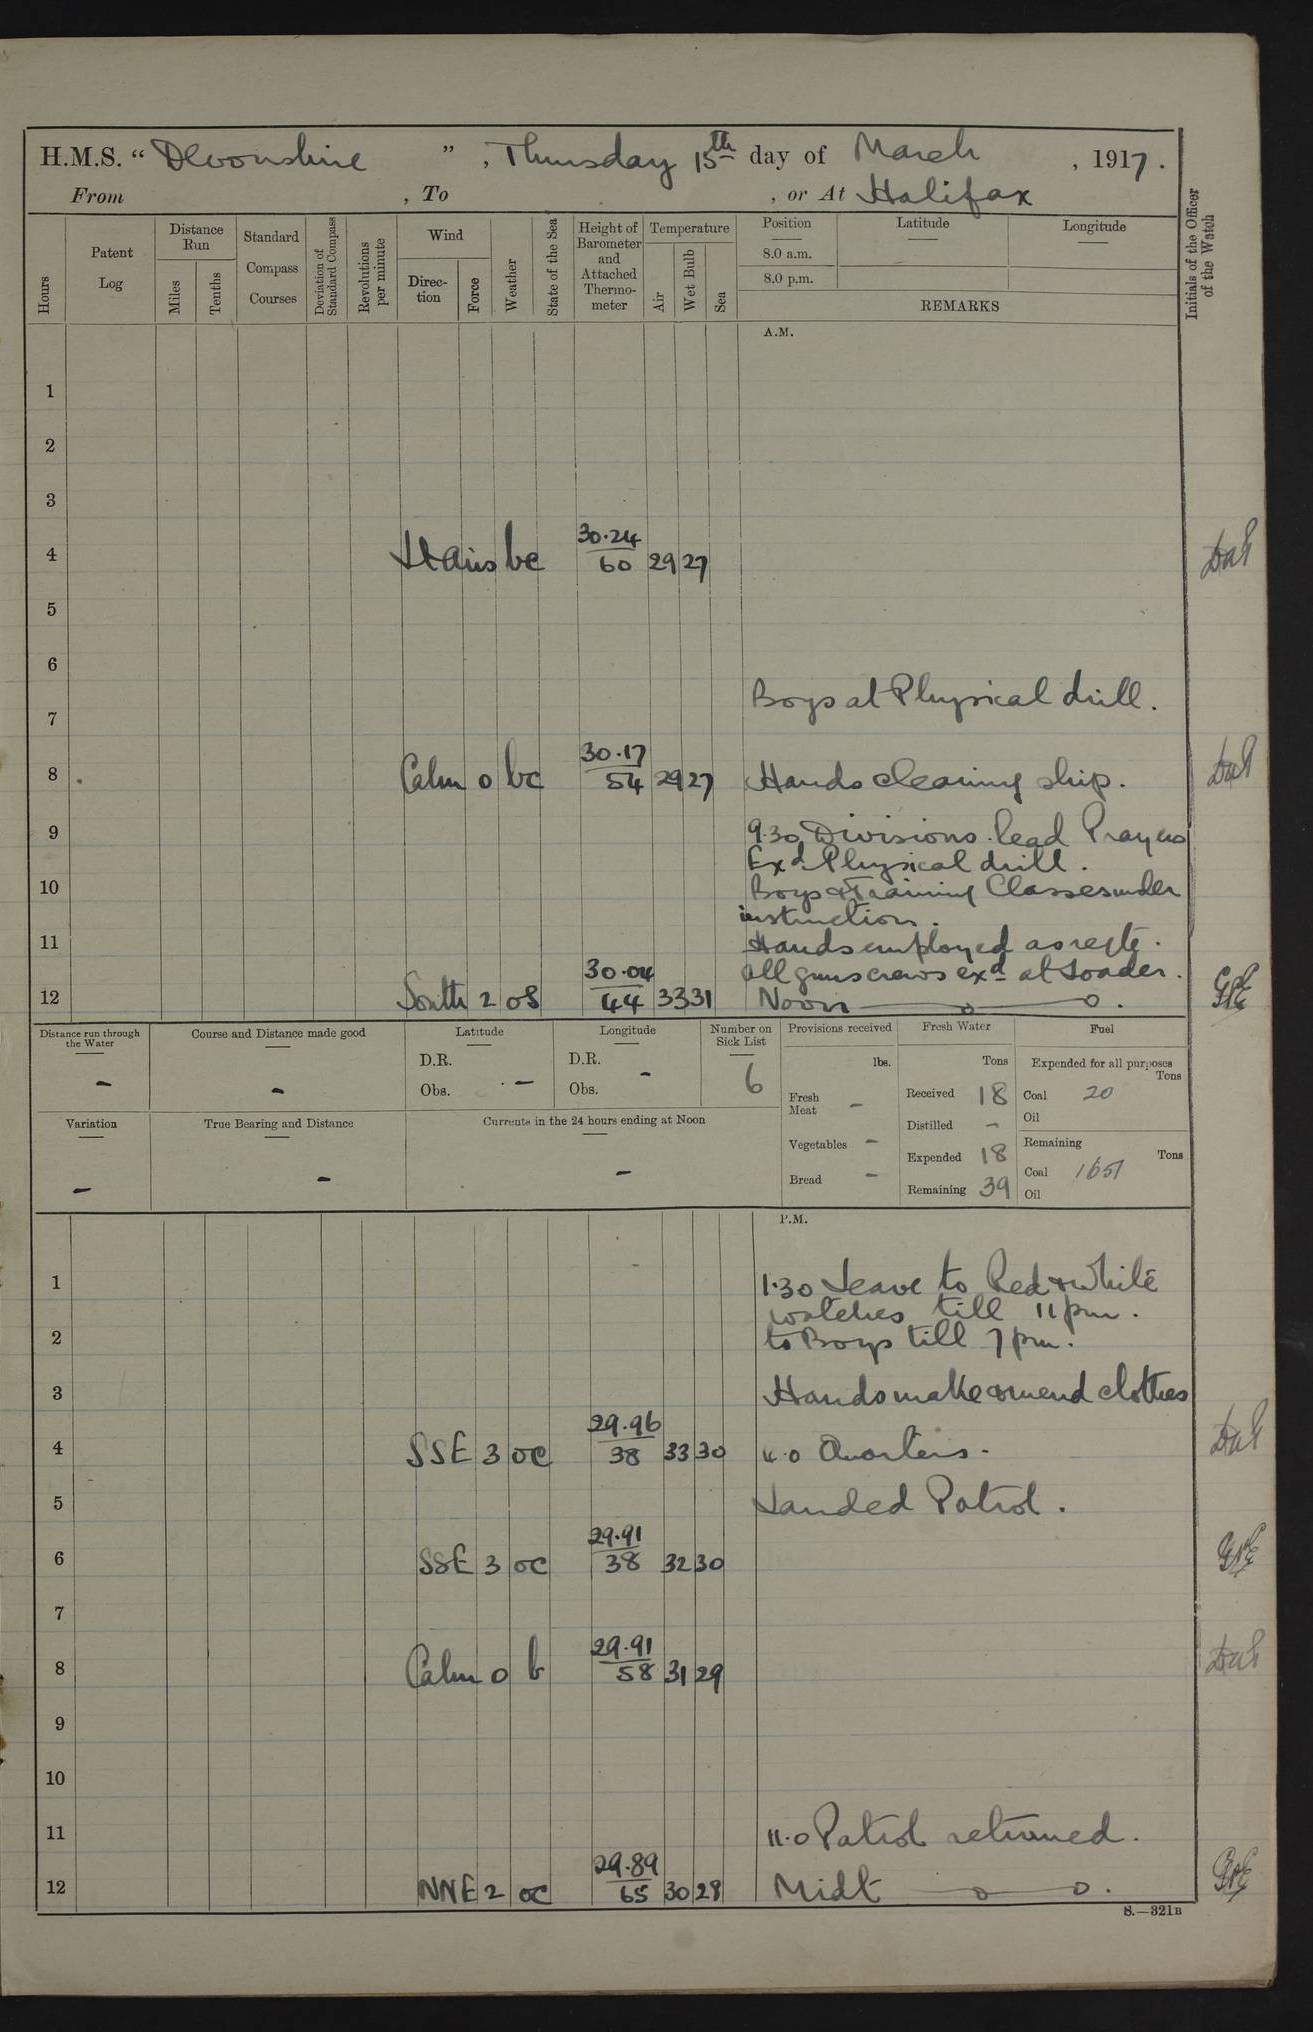 H.M.S. “ Devonshire ” , Thursday 15th day of March , 1917.
From , To , or At Halifax
Hours
Patent Log
Distance Run
Miles
Tenths
Standard Compass Courses
Deviation of Standard Compass
Revolutions per minute
Wind
Direction
Force
Weather
State of the Sea
Height of Barometer and Attached Thermometer
Temperature
Air
Wet Bulb
Sea
Position
8.0 a.m.
8.0 p.m.
Latitude
Longitude
REMARKS
Initials of the Officer of the Watch
A.M.
1
2
3
4 Lt airs bc 30.24 60 29 27
5
6
Boys at Physical drill.
7
8 Calm 0 bc 30.17 54 29 27 Hands cleaning ship.
9 9.30 Divisions. Read Prayers
Exd. Physical drill.
10 Boys & Training Classes under
instruction.
11 Hands employed as reqte.
All guns crews exd at Loader.
12 South 2 os 30.04 44 33 31 Noon
Distance run through the Water
-
Course and Distance made good
-
Latitude
D.R.
Obs. -
Longitude
D.R. -
Obs.
Number on Sick List
6
Provisions received
lbs.
Fresh Meat -
Vegetables -
Bread -
Fresh Water
Tons
Received 18
Distilled -
Expended 18
Remaining 39
Fuel
Expended for all purposes
Tons
Coal 20
Oil
Remaining
Tons
Coal 1651
Oil
Variation
-
True Bearing and Distance
-
Currents in the 24 hours ending at Noon
-
P.M.
1 1.30 Leave to Red & White
watches till 11 pm.
2 to Boys till 7 pm.
3 Hands make & mend clothes
4 SSE 3 oc 29.96 38 33 30 4.0 Quarters.
5 Landed Patrol.
6 SSE 3 oc 29.91 38 32 30
7
8 Calm 0 b 29.91 58 31 29
9
10
11 11.0 Patrol returned.
12 NNE 2 oc 29.89 65 30 28 Midt
S.—321B